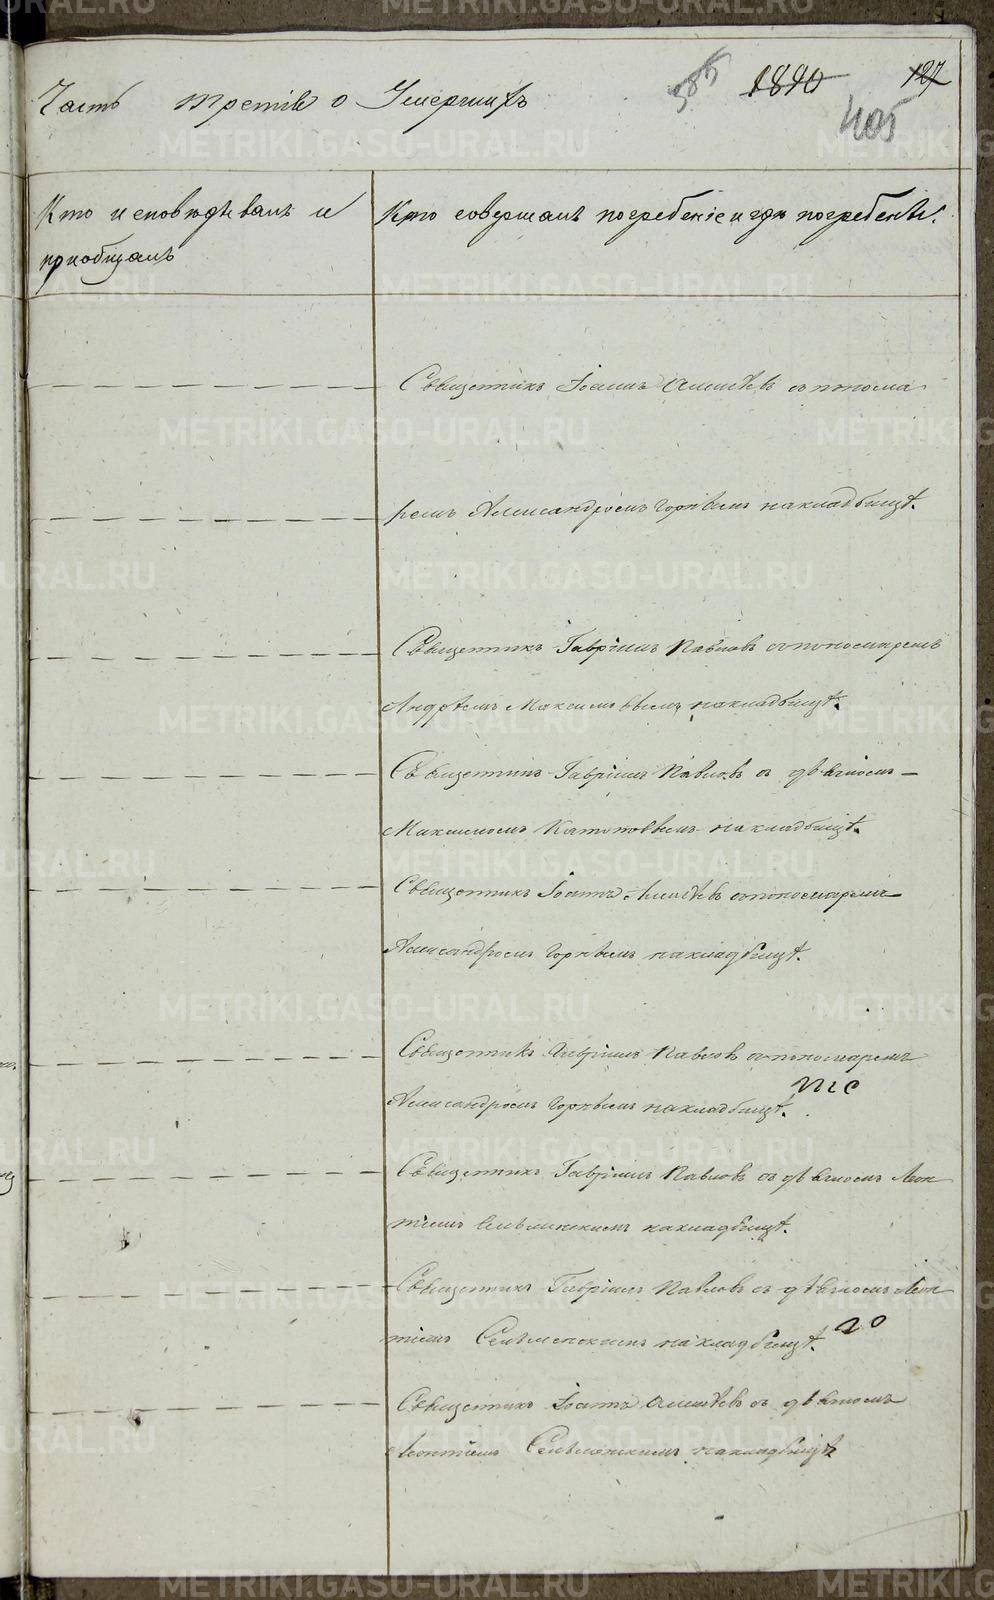 Часть третiя о Умершихъ 385 1840 127
405
Кто исповѣдывалъ и
прiобщалъ
Кто совершалъ погребенiе и гдѣ погребены.
Священникъ Iоаннъ с понома
ремъ Александромъ Горнымъ на кладбищѣ.
Священникъ Гаврiилъ Павловъ с пономаремъ
Андреемъ Максимовымъ на кладбищѣ.
Священникъ Гаврiилъ Павловъ съ дьячкомъ
Максимомъ на кладбищѣ.
Священникъ Iоаннъ с пономаремъ
Александромъ Горнымъ на кладбищѣ.
Священникъ Гаврiилъ Павловъ с пономаремъ
Александромъ Горнымъ на кладбищѣ.
Священникъ Гаврiилъ Павловъ съ дьячкомъ Леон
тiемъ на кладбищѣ.
Священникъ Гаврiилъ Павловъ съ дьячкомъ Леон
тiемъ на кладбищѣ.
Священникъ Iоаннъ съ дьячкомъ
Леонтiемъ на кладбищѣ
METRIKI.GASO-URAL.RU